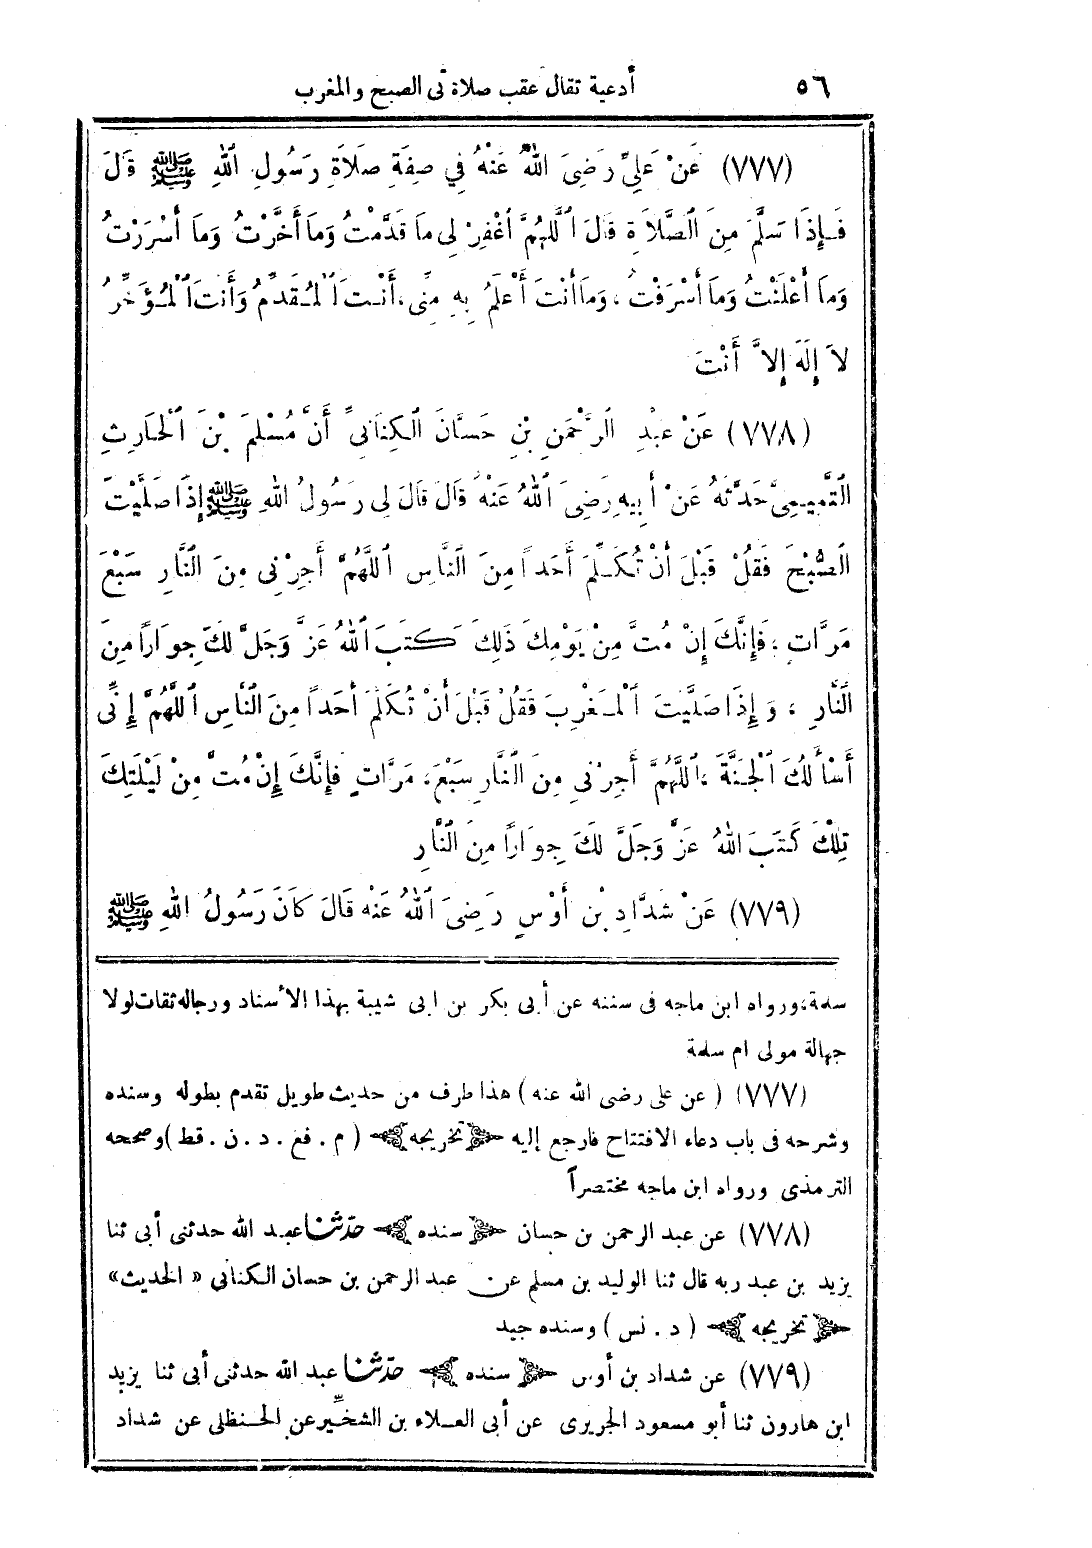 ٥٦ أدعية تقال عقب صلاتى الصبح والمغرب
(٧٧٧) عَنْ عَلِيٍّ رَضِىَ اللهُ عَنْهُ فِي صِفَةِ صَلَاةِ رَسُولِ اللهِ ﷺ قَالَ
فَإِذَا سَلَّمَ مِنَ الصَّلَاةِ قَالَ اللَّهُمَّ اغْفِرْ لِى مَا قَدَّمْتُ وَمَا أَخَّرْتُ وَمَا أَسْرَرْتُ
وَمَا أَعْلَنْتُ وَمَا أَسْرَفْتُ، وَمَا أَنْتَ أَعْلَمُ بِهِ مِنِّى، أَنْتَ الْمُقَدِّمُ وَأَنْتَ الْمُؤَخِّرُ
لَا إِلَهَ إِلَّا أَنْتَ
(٧٧٨) عَنْ عَبْدِ الرَّحْمَنِ بْنِ حَسَّانَ الْكِنَانِىِّ أَنَّ مُسْلِمَ بْنَ الْحَارِثِ
التَّمِيمِىَّ حَدَّثَهُ عَنْ أَبِيهِ رَضِىَ اللهُ عَنْهُ قَالَ قَالَ لِى رَسُولُ اللهِ ﷺ إِذَا صَلَّيْتَ
الصُّبْحَ فَقُلْ قَبْلَ أَنْ تُكَلِّمَ أَحَداً مِنَ النَّاسِ اللَّهُمَّ أَجِرْنِى مِنَ النَّارِ سَبْعَ
مَرَّاتٍ، فَإِنَّكَ إِنْ مُتَّ مِنْ يَوْمِكَ ذَلِكَ كَتَبَ اللهُ عَزَّ وَجَلَّ لَكَ جِوَاراً مِنَ
النَّارِ، وَإِذَا صَلَّيْتَ الْمَغْرِبَ فَقُلْ قَبْلَ أَنْ تُكَلِّمَ أَحَداً مِنَ النَّاسِ اللَّهُمَّ إِنِّى
أَسْأَلُكَ الْجَنَّةَ، اللَّهُمَّ أَجِرْنِى مِنَ النَّارِ سَبْعَ، مَرَّاتٍ فَإِنَّكَ إِنْ مُتَّ مِنْ لَيْلَتِكَ
تِلْكَ كَتَبَ اللهُ عَزَّ وَجَلَّ لَكَ جِوَاراً مِنَ النَّارِ
(٧٧٩) عَنْ شَدَّادِ بْنِ أَوْسٍ رَضِىَ اللهُ عَنْهُ قَالَ كَانَ رَسُولُ اللهِ ﷺ
سلمة، ورواه ابن ماجه فى سننه عن أبى بكر بن ابى شيبة بهذا الأسناد ورجاله ثقات لولا
جهالة مولى ام سلمة
(٧٧٧) (عن على رضى الله عنه) هذا طرف من حديث طويل تقدم بطوله وسنده
وشرحه فى باب دعاء الافتتاح فارجع إليه ﴿تخريجه﴾ (م. فع. د. ن. قط) وصححه
الترمذى ورواه ابن ماجه مختصراً
(٧٧٨) عن عبد الرحمن بن حسان ﴿سنده﴾ حدّثنا عبد الله حدثنى أبى ثنا
يزيد بن عبد ربه قال ثنا الوليد بن مسلم عن عبد الرحمن بن حسان الكنانى «الحديث»
﴿تخريجه﴾ (د. نس) وسنده جيد
(٧٧٩) عن شداد بن أوس ﴿سنده﴾ حدّثنا عبد الله حدثنى أبى ثنا يزيد
ابن هارون ثنا أبو مسعود الجريرى عن أبى العلاء بن الشخّير عن الحنظلى عن شداد